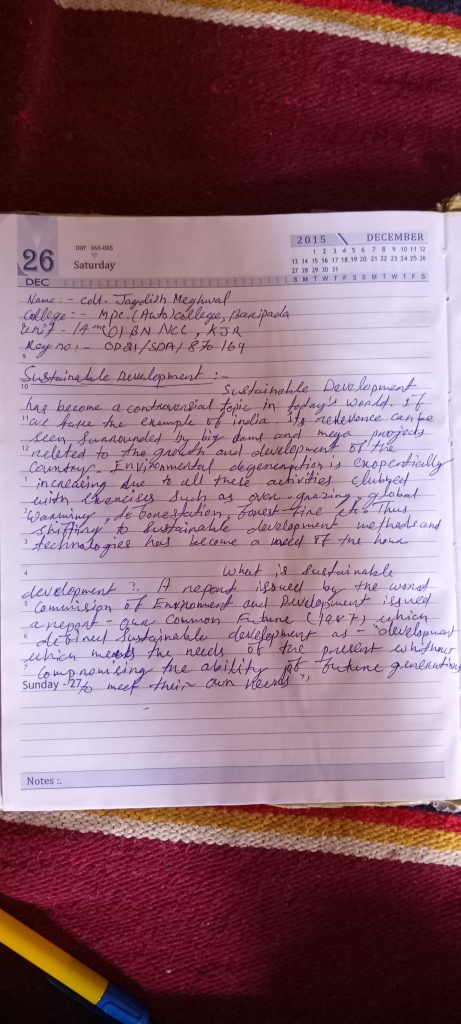 2015 DECEMBER
1 2 3 4 5 6 7 8 9 10 11 12
13 14 15 16 17 18 19 20 21 22 23 24 25 26
27 28 29 30 31
S M T W T F S S M T W T F S
DAY 360-005
26
Saturday
DEC
Name:- cdt. Jagdish Meghwal
College:- Mpc. (Auto) college, Baripada
Unit - (O) BN NCC, KJR
Reg no:- OD21/SDA/870164
9
Sustainable Development :-
10
Sustainable Development
has become a controversial topic in today's world. If
11 we take the example of india. Its relevence can be
seen surrounded by big dams and mega projects
12 related to the growth and development of the
country. Environmental degeneration is exopertially
1 increasing due to all these activities clubbed
with exercises such as over-grazing, global
2 warming, deforestation, forest fire etc. Thus
shifting to sustainable development methods and
3 technologies has become a need of the hour
4 What is sustainable
development ?. A report issued by the world
5 Commision of Environment and Development issued
a report - our Common Future (1987) which
6 defined sustainable development as - "development
which meets the needs of the present without
7 compromising the ability of future generations
Sunday - 27 to meet their own needs",
Notes :.